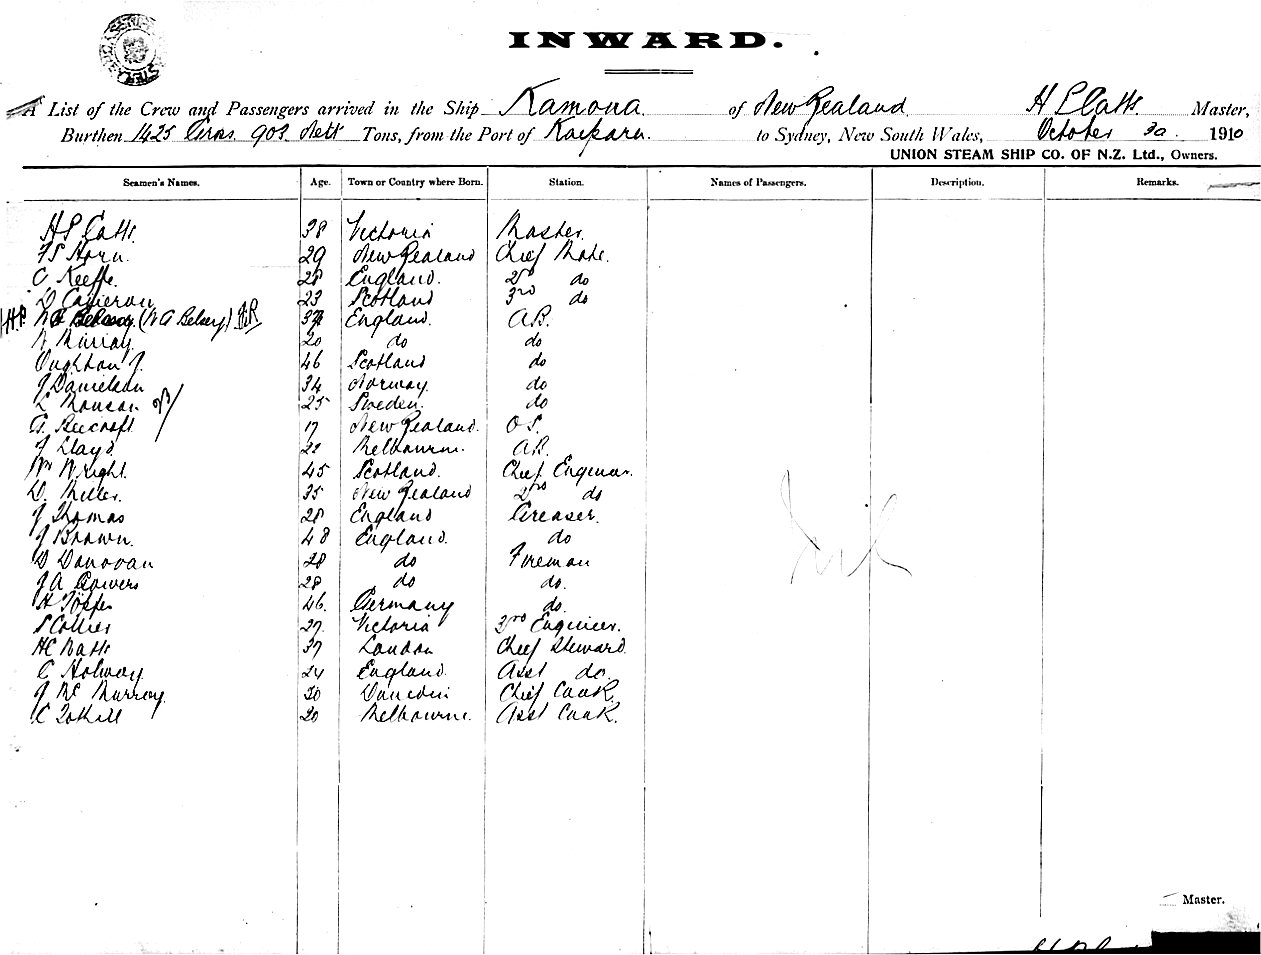 INWARD.
A List of the Crew and Passengers arrived in the Ship Kamona of New Zealand H S Catts Master,
Burthen 1425 Gros. 903 Nett Tons, from the Port of Kaipara. to Sydney, New South Wales, October 30. 1910
UNION STEAM SHIP CO. OF N.Z. Ltd., Owners.
Seamen's Names. Age. Town or Country where Born. Station. Names of Passengers. Description. Remarks.
H S Catts. 38 Victoria Master.
F S Horn. 29 New Zealand Chief Mate.
C. Keeffe. 28 England. 2nd do
D Cameron 23 Scotland 3rd do
(W A Belsey) England. A.B.
W Murray. 20 do do
Oughton J. 46 Scotland do
J Danielson 34 Norway. do
L Monson 25 Sweden. do
A. Beecroft 17 New Zealand. O S.
J Lloyd 22 Melbourne. A.B.
Wm Wright. 45 Scotland. Chief Engineer.
D. Miller. 35 New Zealand 2nd do
J Thomas 28 England Greaser.
J Brown. 48 England. do
D Donovan 28 do Fireman
J A Gowers 28 do do.
H Töpfer 46. Germany do.
S Collier 27. Victoria 3rd Engineer.
H C Batts 37 London Chief Steward.
C Holway 24 England. Asst do.
J Mc Murray. 30 Dunedin Chief Cook.
C Tothill 20 Melbourne. Asst Cook.
Nil
Master.